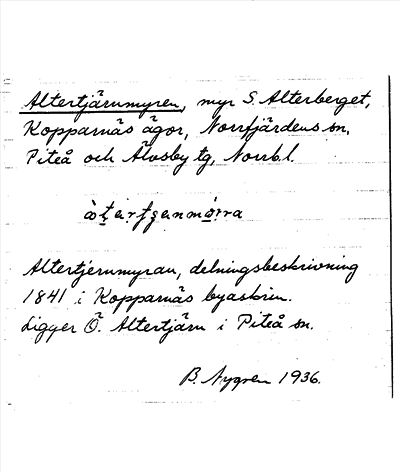 Altertjärnmyren, myr S. Alterberget,
Kopparnäs ägor, Norrfjärdens sn,
Piteå och Älvsby tg, Norrb.l.
Altertjernmyran, delningsbeskrivning
1841 i Kopparnäs byaskrin.
Ligger Ö. Altertjärn i Piteå sn.
B. Nygren 1936.